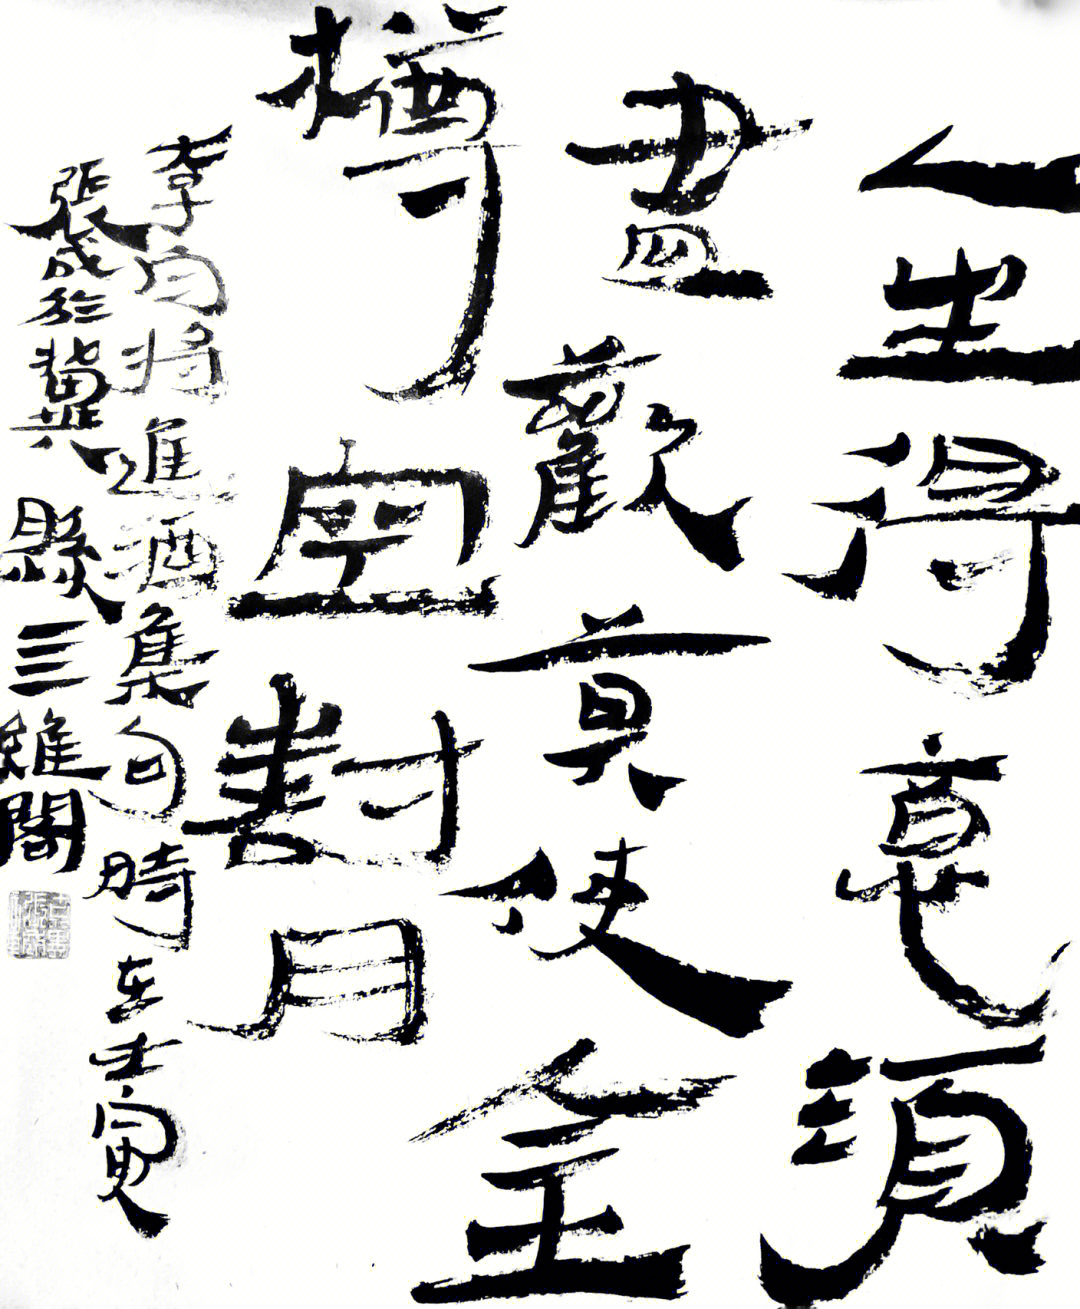 人生得意須
盡歡莫使金
樽空對月
李白將進酒集句時在壬寅
張成於冀縣三維閣